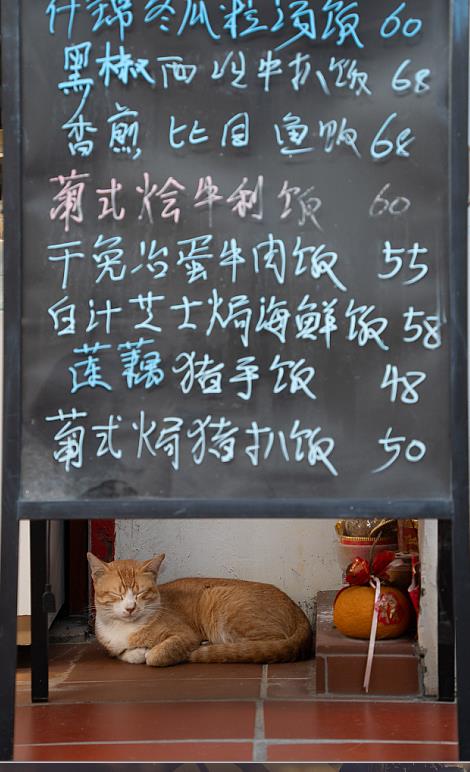 什錦冬瓜粒湯饭 60
黑椒西冷牛扒饭 68
香煎比目鱼饭 68
葡式烩牛利饭 60
干免治蛋牛肉饭 55
白汁芝士焗海鲜饭 58
莲藕猪手饭 48
葡式焗猪扒饭 50